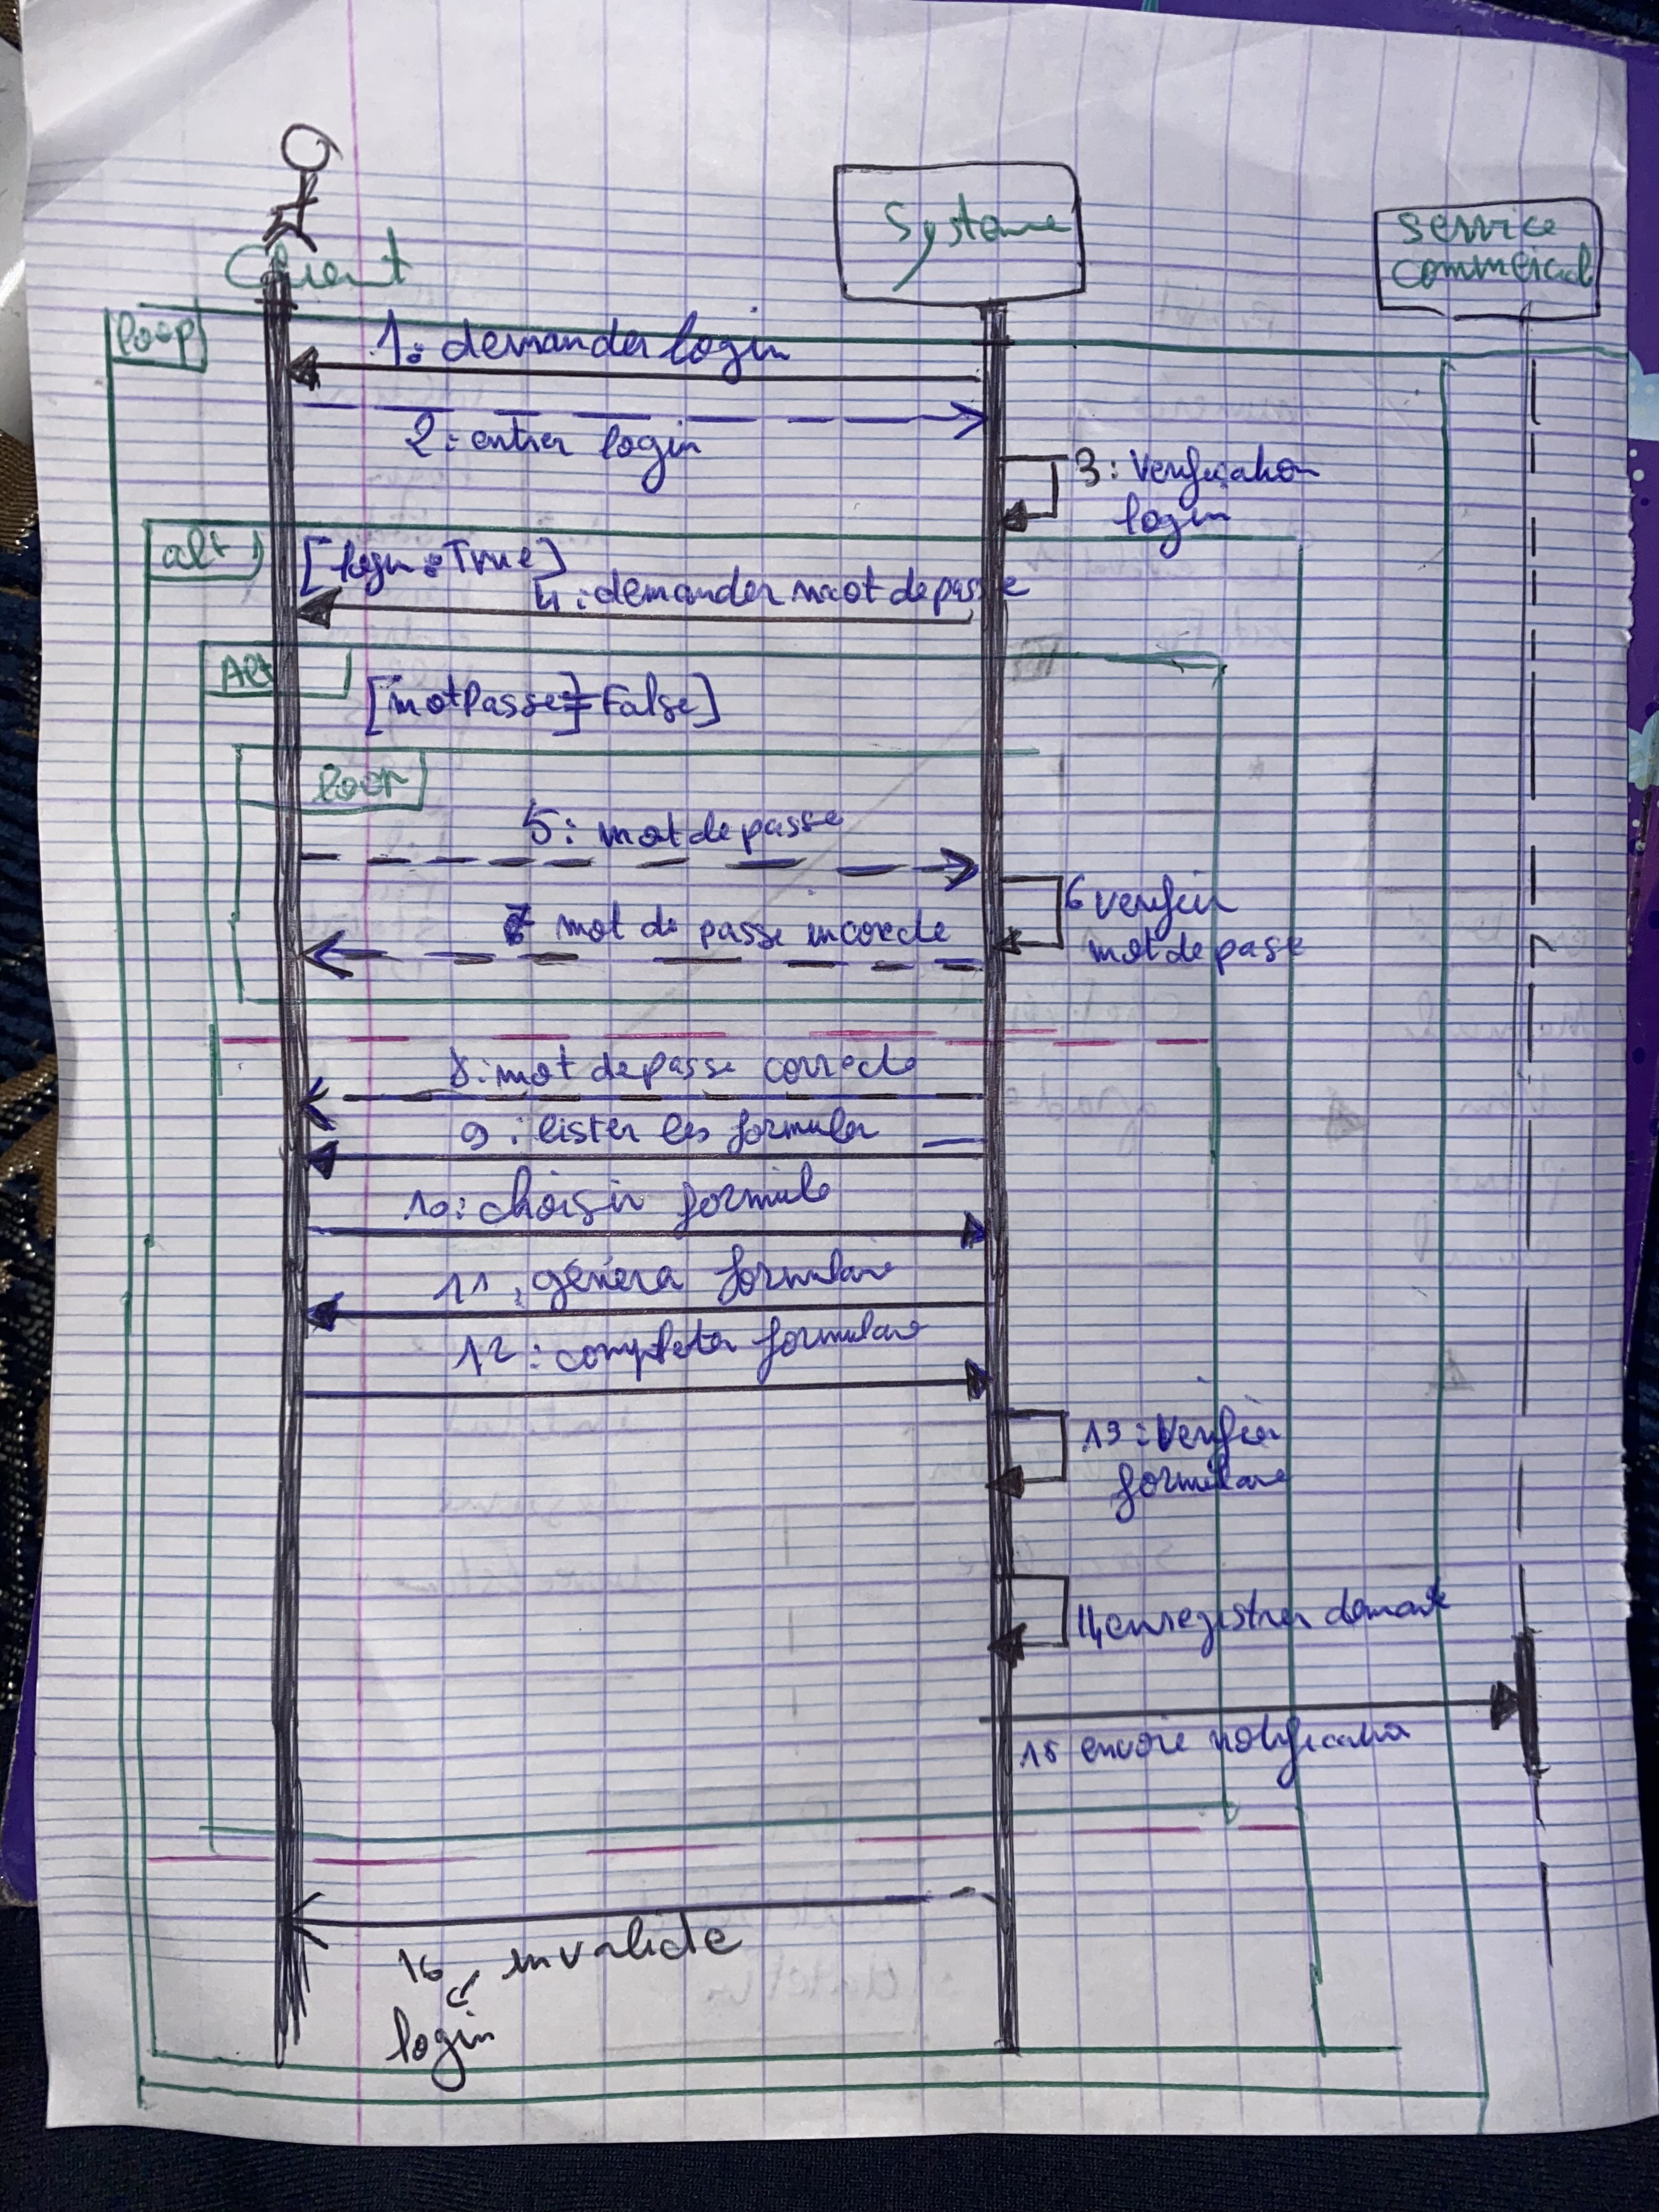 Client
Systeme
service
commercial
loop
1: demander login
2: entrer login
3: Verification
login
alt
[login = True]
4: demander mot de passe
Alt
[motPasse = False]
loop
5: mot de passe
6 verifier
mot de passe
7 mot de passe incorecte
8: mot de passe correcte
9: lister les formules
10: choisir formule
11: génera formulaire
12: completer formulaire
13: Verifier
formulaire
14 enregistrer demande
15 envoie notification
16 invalide
login